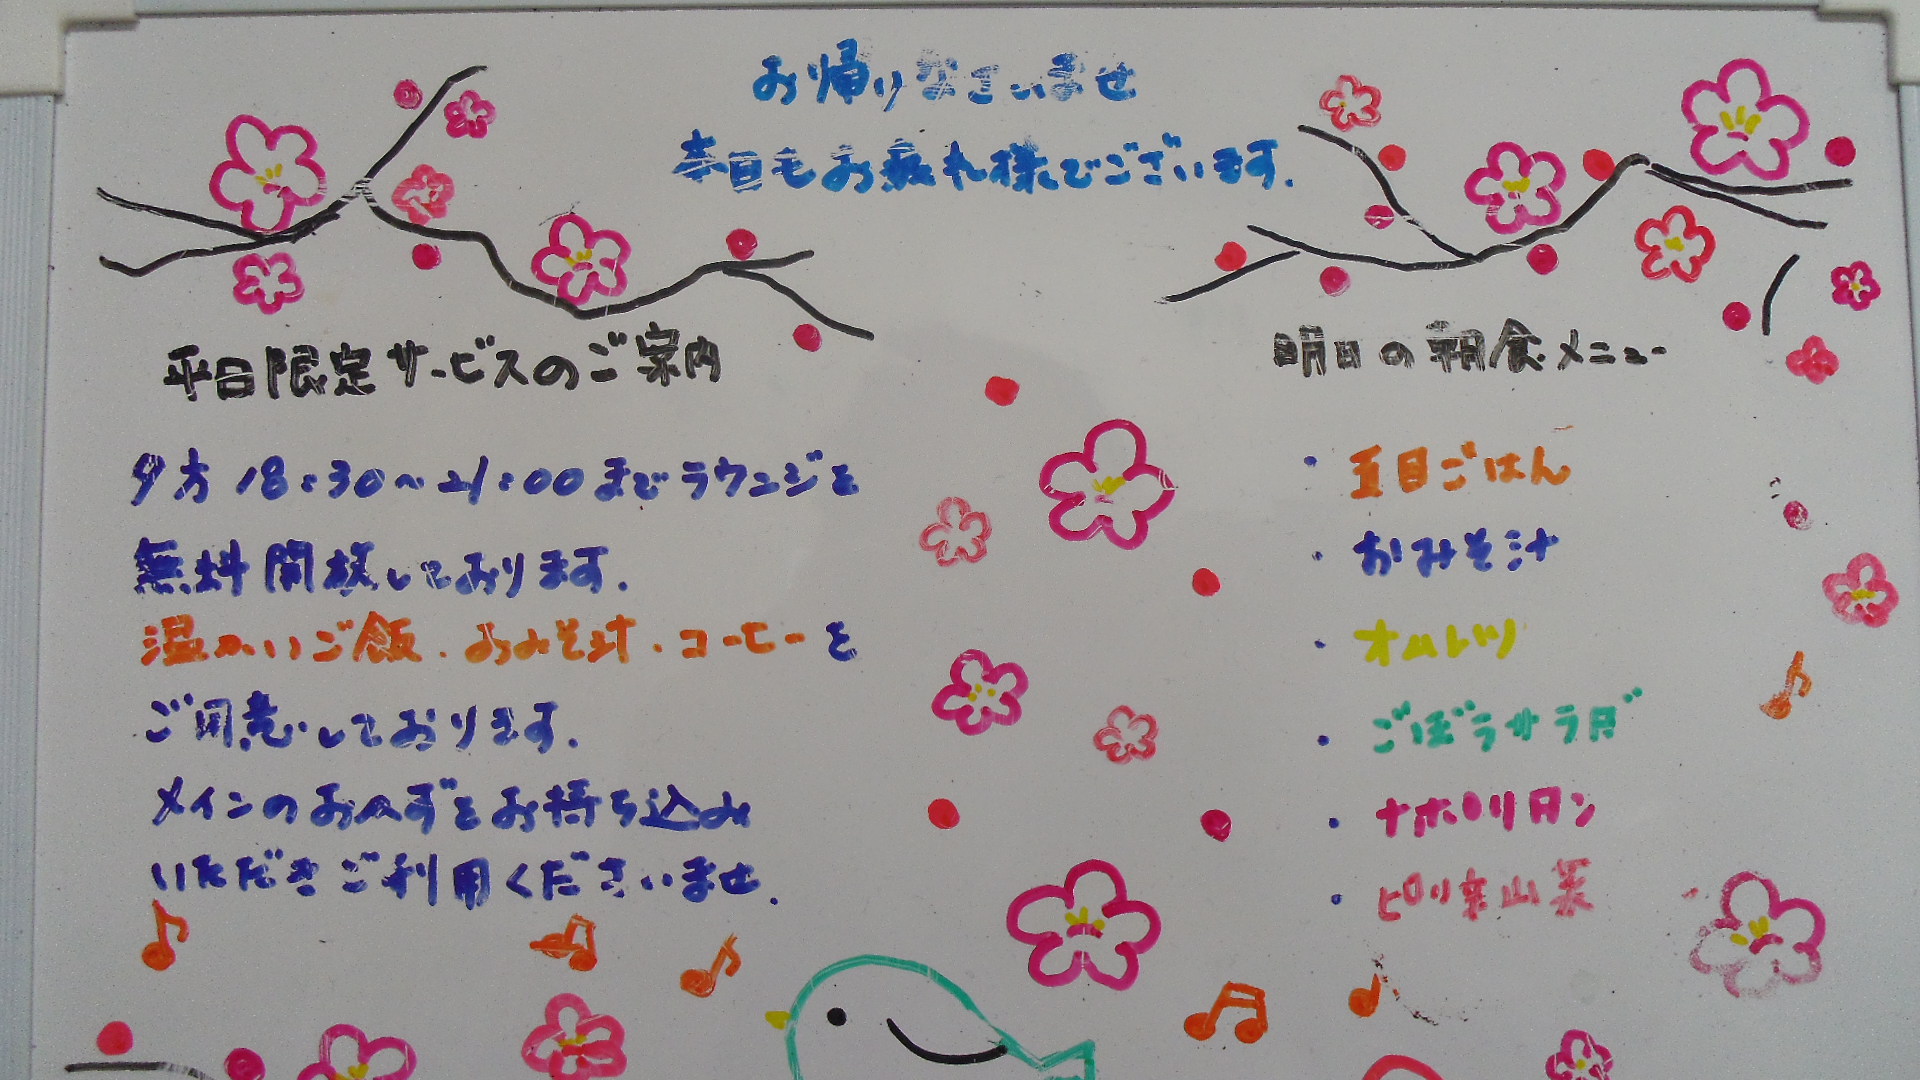 お帰りなさいませ
本日もお疲れ様でございます.
平日限定サービスのご案内
夕方18:30~21:00までラウンジを
無料開放しております.
温かいご飯.おみそ汁.コーヒーを
ご用意しております.
メインのおかずをお持ち込み
いただきご利用くださいませ.
明日の朝食メニュー
・五目ごはん
・おみそ汁
・オムレツ
・ごぼうサラダ
・ナポリタン
・ピリ辛山菜